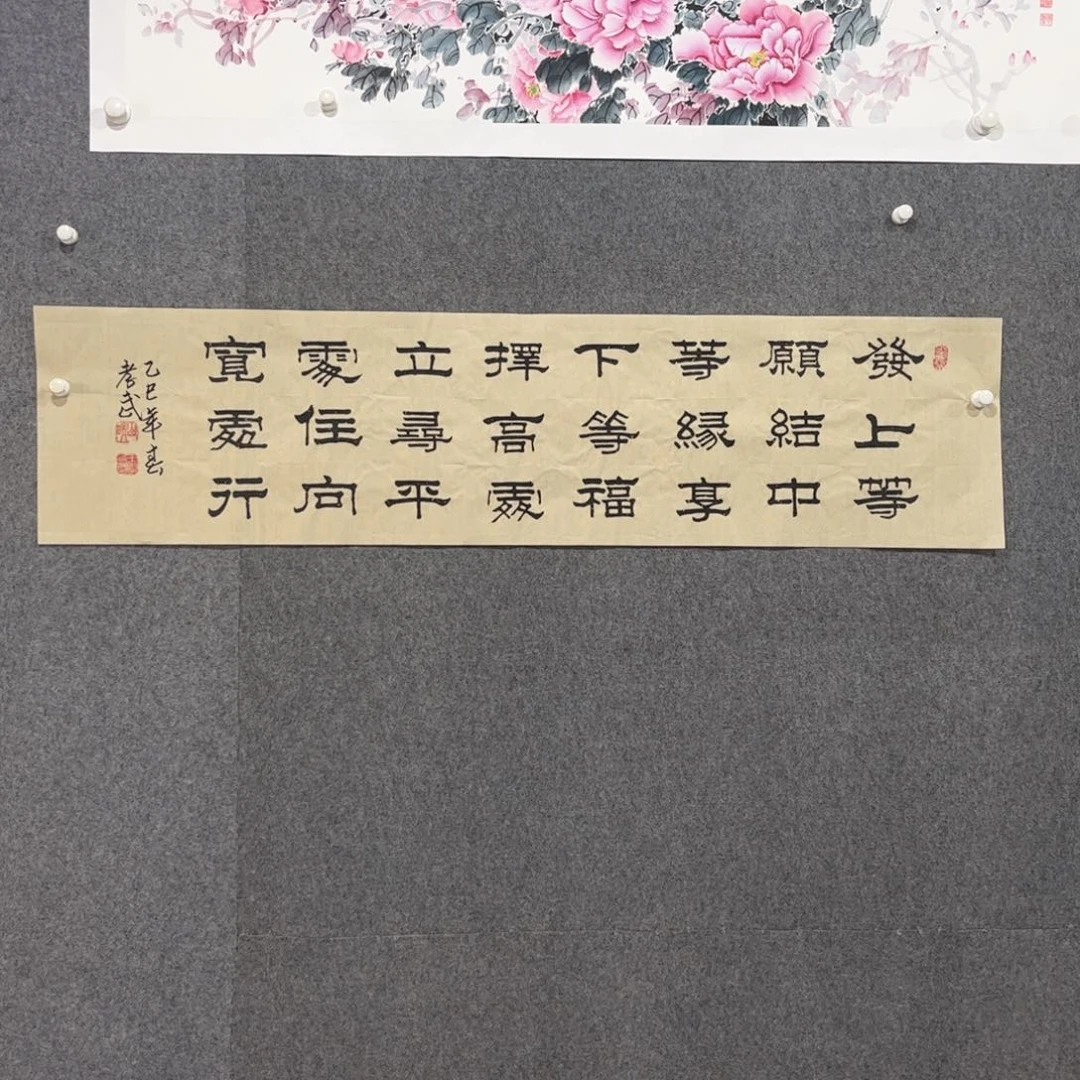 發上等
願結中
等緣享
下等福
擇高處
立尋平
處住向
寬處行
乙巳年春
孝武